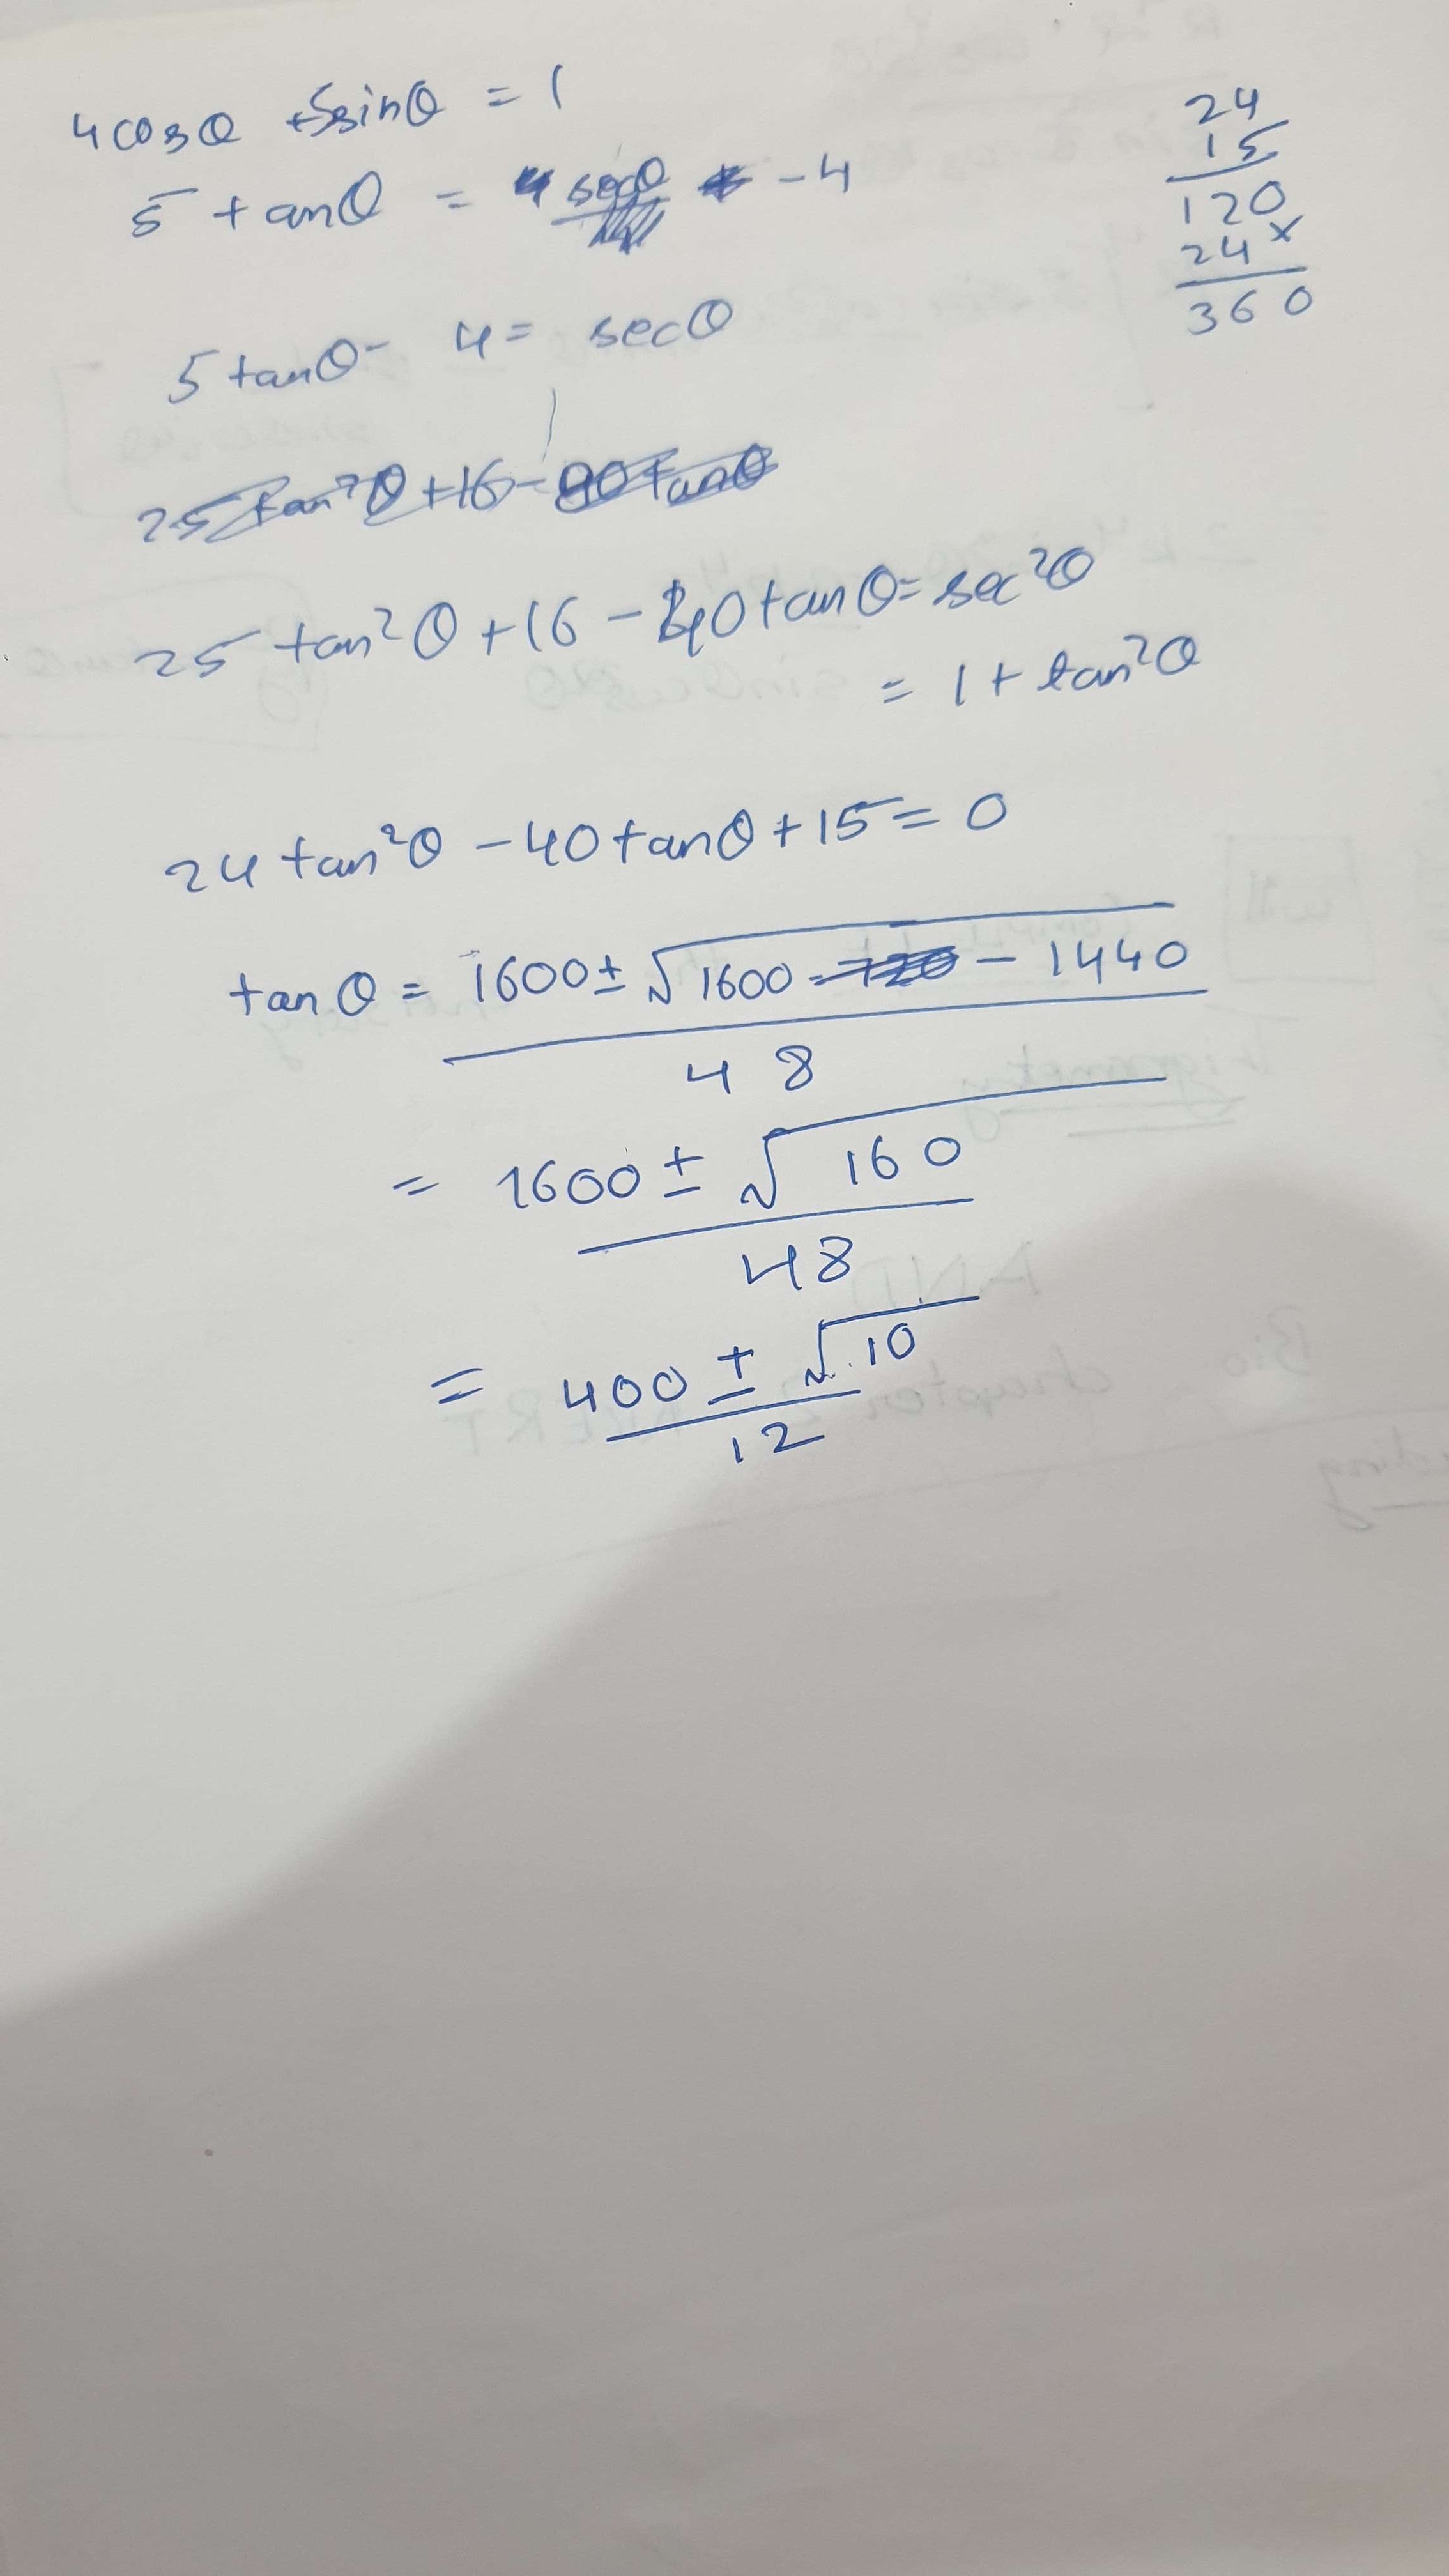 4cosθ +5sinθ = 1
5 tanθ = secθ - 4
5tanθ - 4 = secθ
25 tan²θ + 16 - 80tanθ
25 tan²θ + 16 - 40tanθ = sec²θ
= 1 + tan²θ
24 tan²θ - 40tanθ + 15 = 0
tanθ = 1600 ± √1600 - 720 - 1440
48
= 1600 ± √160
48
= 400 ± √10
12
24
15
120
24×
360